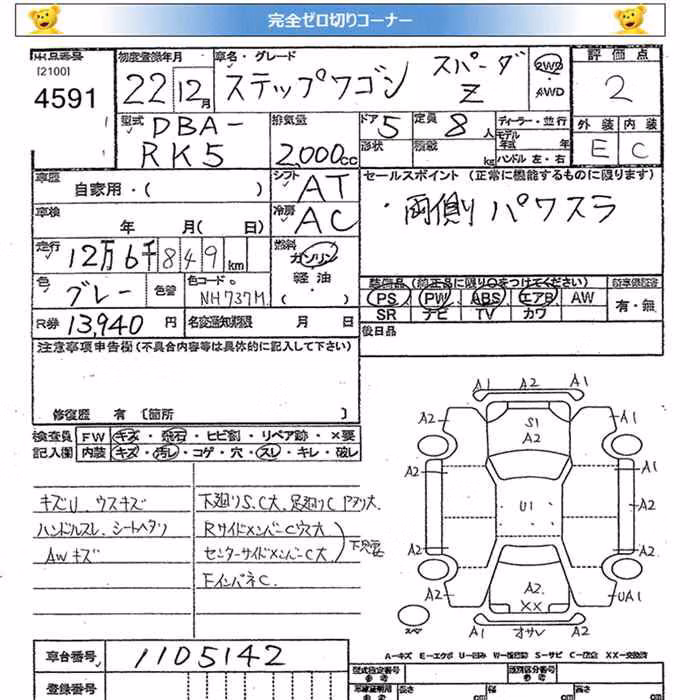 完全ゼロ切りコーナー
出品番号 初度登録年月 車名・グレード 評価点
[2100]
4591
22 12月 ステップワゴン スパーダ Z 2WD 4WD 2
型式 排気量 ドア 定員 ディーラー・並行 外装 内装
DBA-RK5 2,000cc 5 8人 モデル年式 年 E C
形状 積載 kg ハンドル 左・右
車歴 シフト セールスポイント (正常に機能するものに限ります)
自家用・( ) AT
車検 冷房 ・両側パワスラ
年 月( 日) AC
走行 燃料
12万6千849km ガソリン 軽油
色 色替 カラーコード 装備品(純正品に限り○をつけてください)
グレー NH737M ・( )
PS PW ABS エアB AW 有・無
SR ナビ TV カワ
R券 13,940円 名変通知期限 月 日 後日品
注意事項申告欄(不具合内容等は具体的に記入して下さい)
修復歴 有 [箇所 ]
検査員 FW キズ・飛石・ヒビ割・リペア跡・×要
記入欄 内装 キズ・汚レ・コゲ・穴・スレ・キレ・破レ
キズU、ウスキズ
ハンドルスレ、シートヘタリ
AWキズ
下廻りS、C大、足廻りC
RサイドメンバーC
センターサイドメンバーC大
FインパネC
A1 A2 A1
A2 S1 A1
A2
A2 A1
U1
A2 A2
A2 A2 UA1
XX
スペア A1 オサレ A1
A-キズ E-エクボ U-凹み W-補修跡 S-サビ C-腐食 XX-交換済
車台番号 1105142
型式指定番号 参考 類別区分番号 参考
登録番号 長さ cm 幅 cm 高さ cm